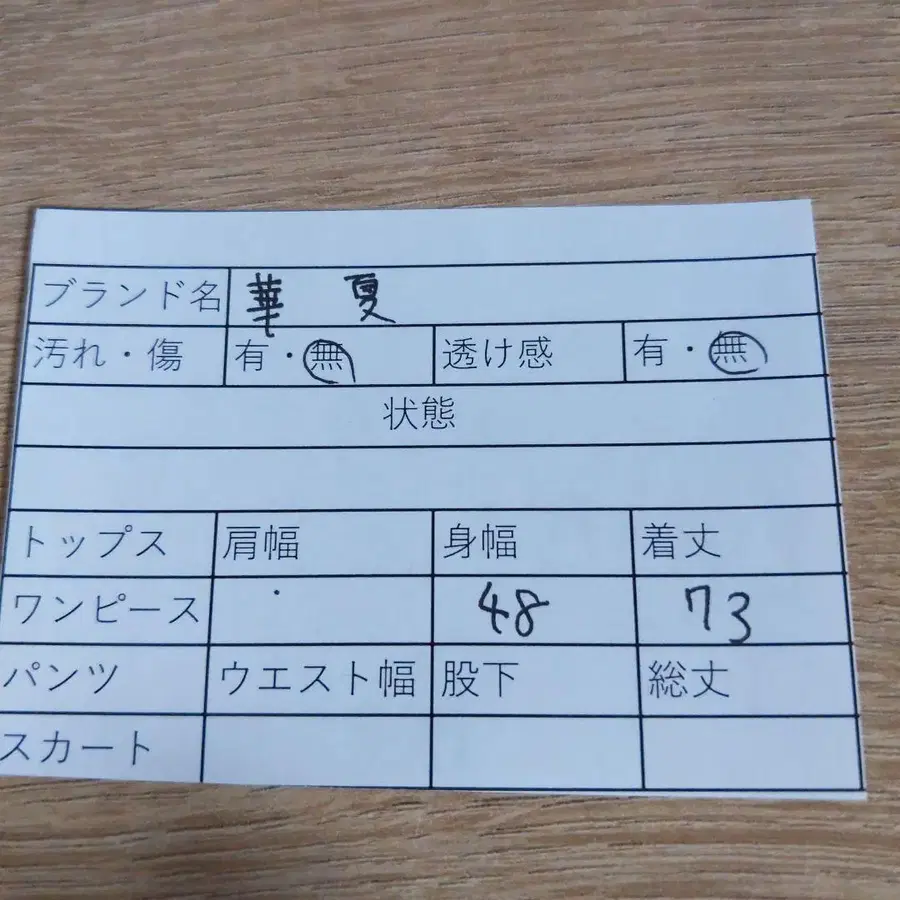 ブランド名 華 夏
汚れ・傷 有・無 透け感 有・無
状態
トップス 肩幅 身幅 着丈
ワンピース 48 73
パンツ ウエスト幅 股下 総丈
スカート